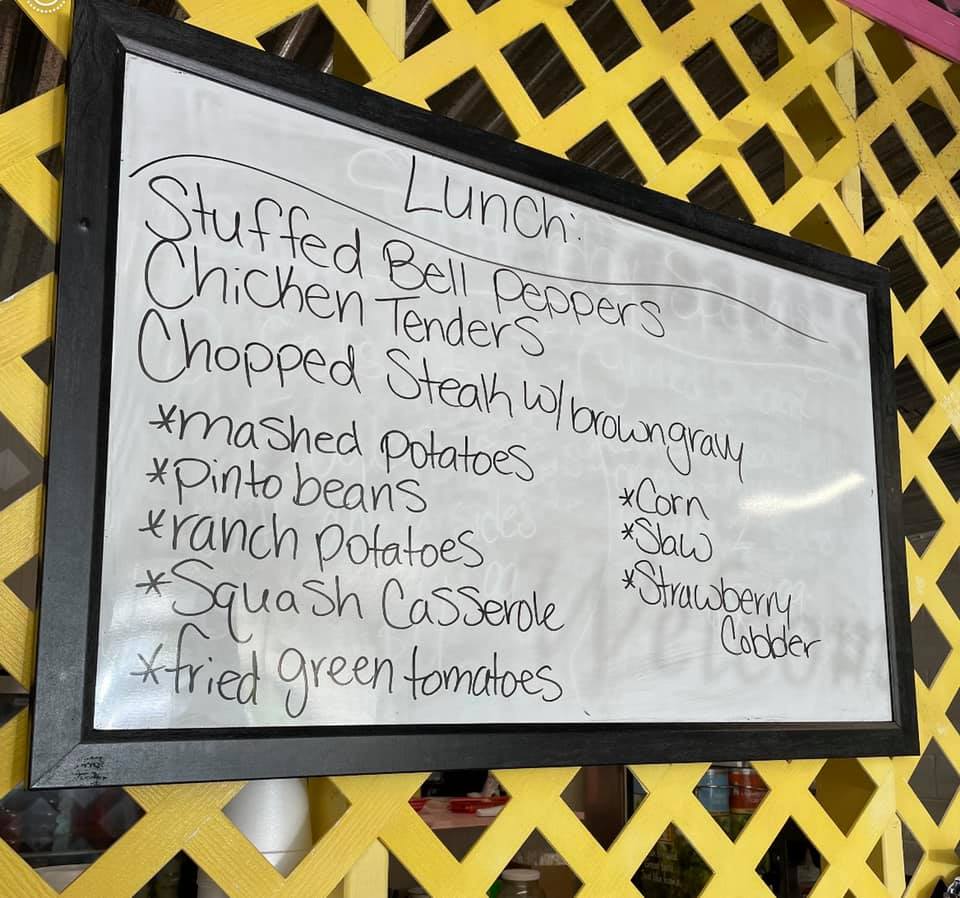 Lunch:
Stuffed Bell Peppers
Chicken Tenders
Chopped Steak w/ brown gravy
*mashed potatoes
*pinto beans
*ranch potatoes
*Squash Casserole
*fried green tomatoes
*Corn
*Slaw
*Strawberry
Cobbler